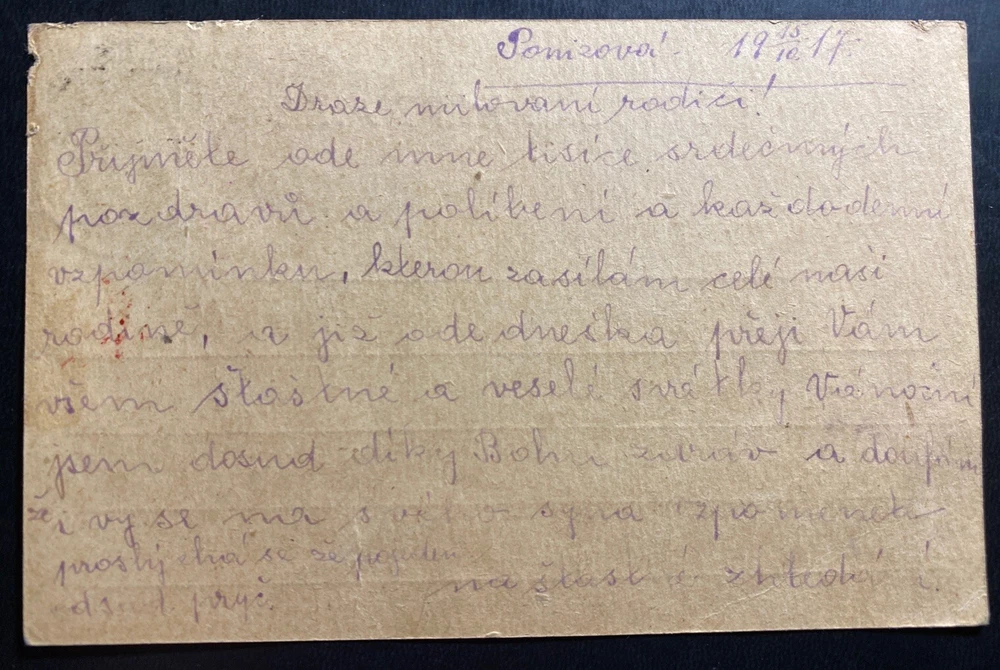 Ponizová. 19 15/10 17.
Draze milovaní rodiči!
Přijměte ode mne tisíce srdečných
pozdravů a políbení a každodenní
vzpomínku, kterou zasílám celé naší
rodině, a již ode dneška přeji Vám
všem šťastné a veselé svátky Vánoční
jsem dosud díky Bohu zdráv a doufám
že i vy se na svého syna
proslýchá se že pojedem na šťastné
dsud pryč.